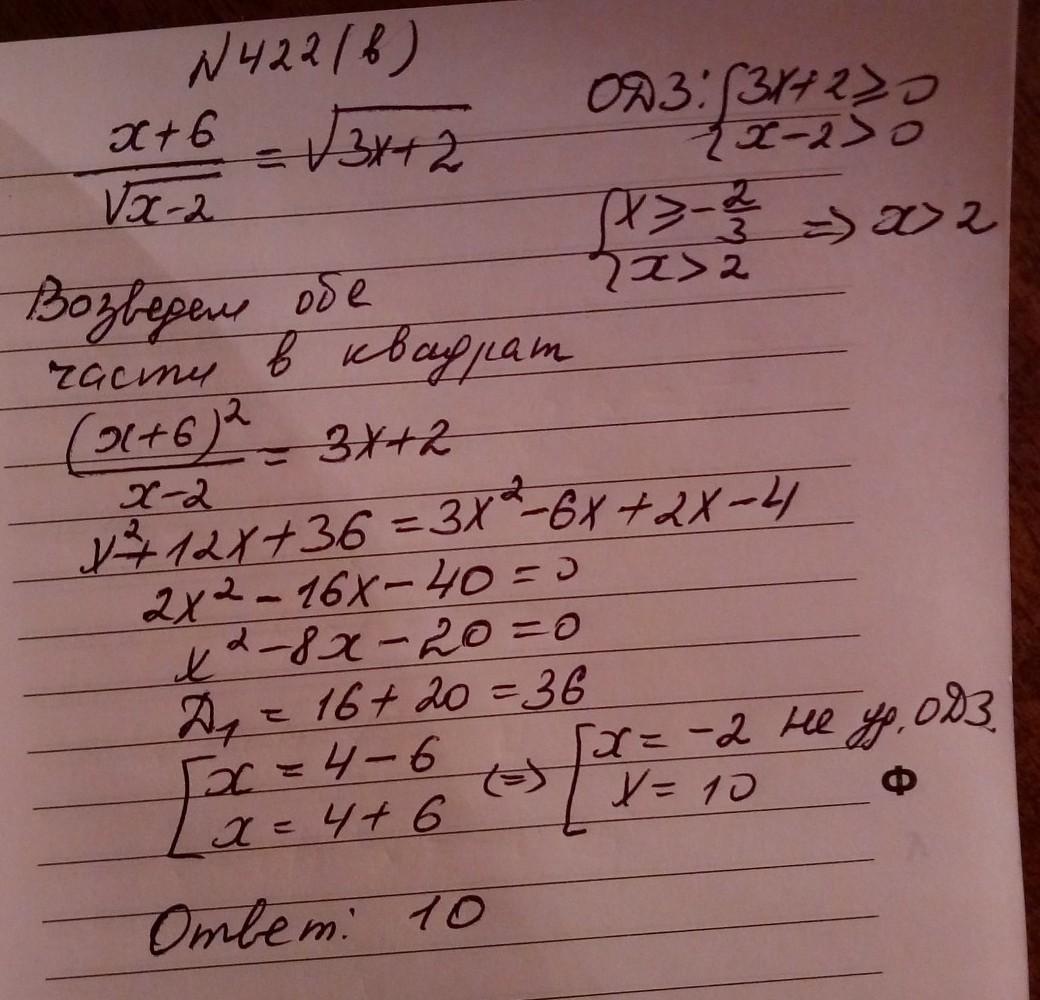 N422(в)
(x+6)/√(x-2) = √(3x+2)
ОДЗ: { 3x+2 ≥ 0
{ x-2 > 0
{ x ≥ -2/3
{ x > 2 => x > 2
Возведем обе
части в квадрат
(x+6)²/(x-2) = 3x+2
x²+12x+36 = 3x²-6x+2x-4
2x²-16x-40=0
x²-8x-20=0
Д₁ = 16+20 = 36
[ x = 4-6 (=> [ x = -2 не уд. ОДЗ.
[ x = 4+6 [ x = 10
Ф
Ответ: 10